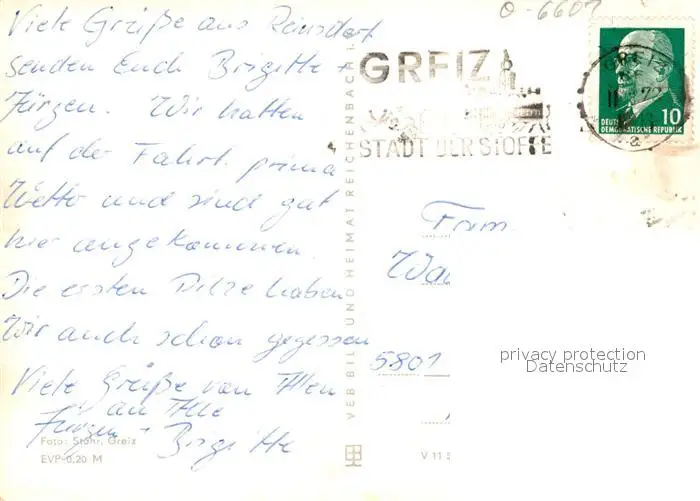 Viele Grüße aus Reinsdorf
senden Euch Brigitte +
Jürgen. Wir hatten
auf der Fahrt prima
Wetter und sind gut
hier angekommen.
Die ersten Pilze haben
Wir auch schon gegessen
Viele Grüße von Allen
an Alle
Jürgen + Brigitte
Foto: Stöhr, Greiz
EVP-0,20 M
VEB BILD UND HEIMAT REICHENBACH I.
V 11
0-6607
GREIZ
STADT DER STOFFE
GREIZ
a
10
DEUTSCHE
DEMOKRATISCHE REPUBLIK
Fam
5801
privacy protection
Datenschutz